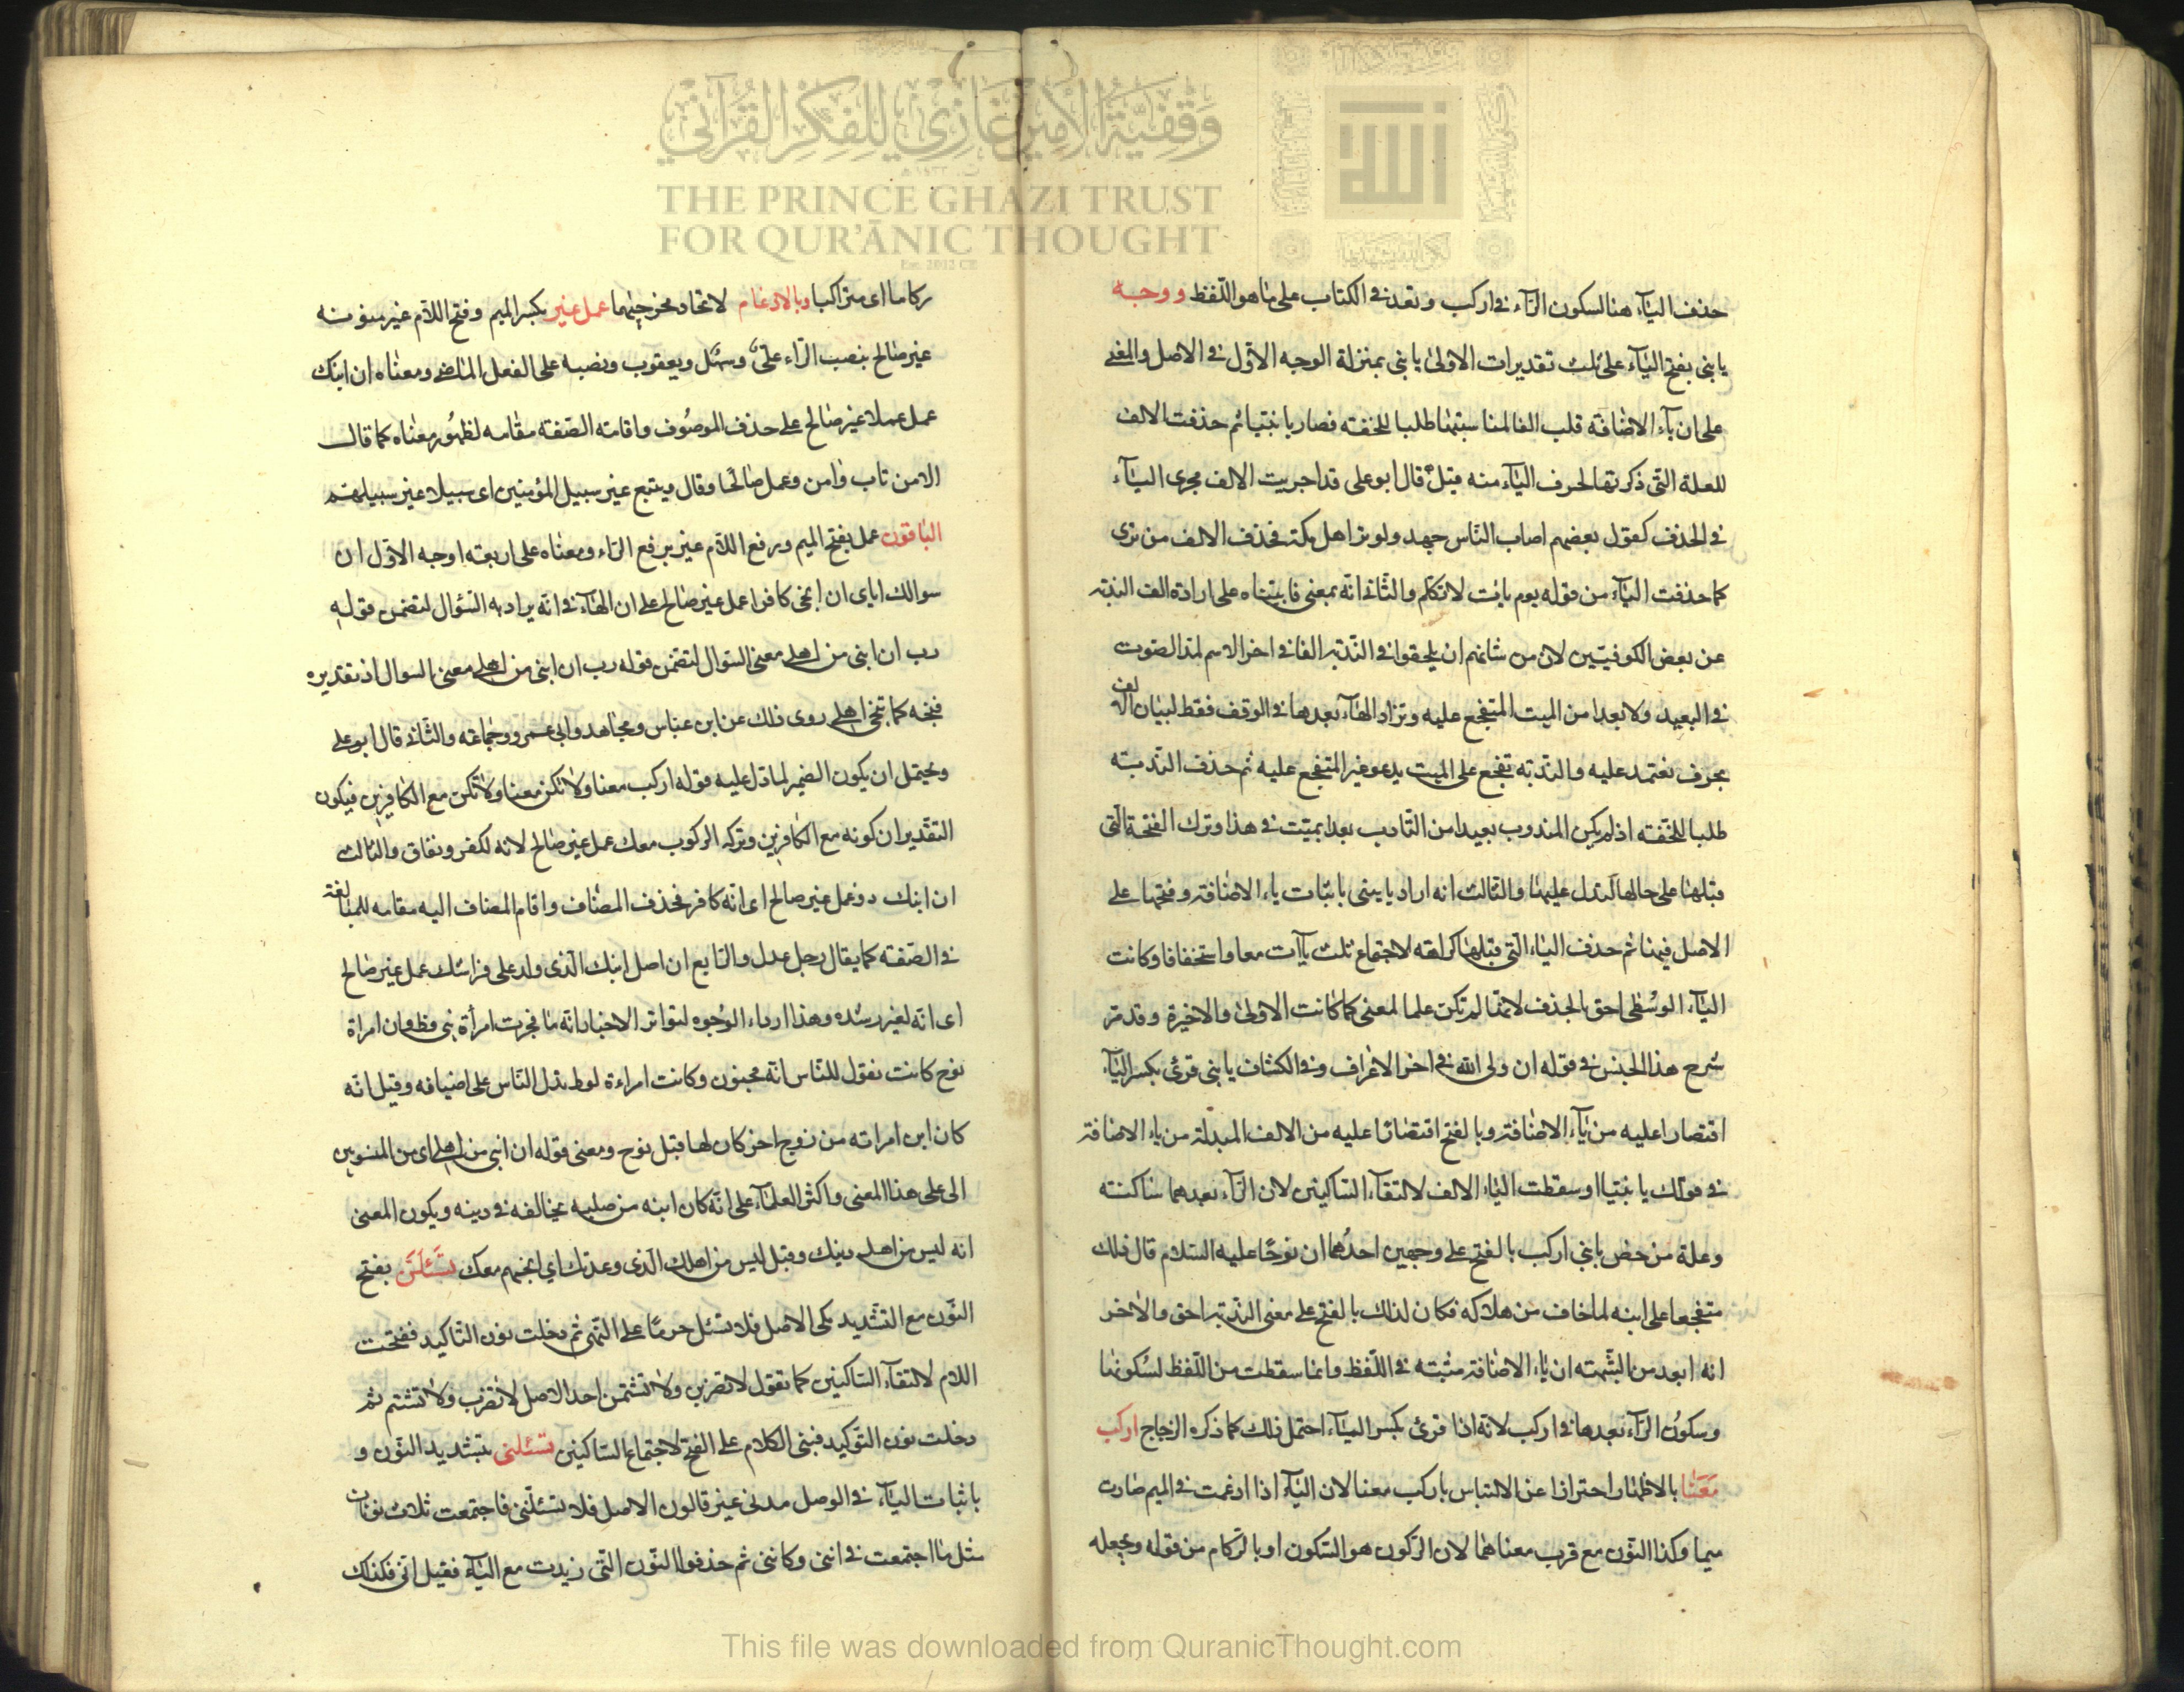 وقفية الأمير غازي للفكر القرآني
THE PRINCE GHAZI TRUST
FOR QUR'ĀNIC THOUGHT
Est. 2012 CE
حذف اليآء هنا لسكون الرآء في اركب وتعد في الكتاب على ما هو اللّفظ ووجه
يابني بفتح اليآء على ثلث تقديرات الاولى يا بني بمنزلة الوجه الاوّل في الاصل والمعنى
على ان يآء الاضافة قلب الفا لمناسبتها طلبا للخفته فصار يا بنيا ثم حذفت الالف
للعلة التي ذكرتها لحرف اليآء منه قبل قال ابو على قد اجريت الالف مجرى اليآء
في الحذف كقول بعضهم اصاب النّاس جهد ولو تر اهل مكة فحذف الالف من ترى
كما حذفت اليآء من قوله يوم يات لا تكلم والثّاني انّه بمعنى يا بنياه على ارادة الف الندبة
عن بعض الكوفيّين لان من شانهم ان يلحقوا في النّدبة الفا في اخر الاسم لمد الصّوت
في البعيد ولا بعدا من الميت المتفجع عليه وتزاد الهآء بعدها في الوقف فقط لبيان الالف
بحرف تعتمد عليه والندبة تفجع على الميت يدعو فيه المتفجع عليه ثم حذف الندبة
طلبا للخّفته اذ لم يكن المندوب بعيدا من النّادب بعدا بميّت في هذا وترك الفتحة الّتي
قبلها على حالها لتدل عليها والثالث انه اراد يا بنيي باثبات ياء الاضافة وفتحها على
الاصل فيها ثم حذف الياء الّتي قبلها كراهته لاجتماع ثلث يآات معا واستخفافا وكانت
اليآء الوسطى احق بالحذف لانّها لم تكن علما لمعنى كما كانت الاولى والاخيرة وقد مر
شرح هذا الجنس في قوله ان ولى الله في اخر الاعراف وفي الكشاف يا بنى قرئ بكسر اليآء
اقتصارا عليه من يآء الاضافة وبالفتح اقتصارا عليه من الالف المبدلة من ياء الاضافة
في قولك يا بنيا او سقطت الياء الالف لالتقآء السّاكنين لان الرّآء بعدهما ساكنته
وعلة من خص يا بني اركب بالفتح على وجهين احدُهما ان نوحًا عليه السّلام قال ذلك
متفجعا على ابنه لما خاف من هلاكه فكان لذلك بالفتح على معنى النّدبة احق والاخر
انه ابعد من الشّبهته ان ياء الاضافة مثبته في اللّفظ وانما سقطت من اللّفظ لسُكونها
وسكون الرّآء بعدها في اركب لانّه اذا قرئ بكسر اليآء احتمل ذلك كما ذكره الزجاج اركب
مَعَنا بالاظهار احترازا عن الالتباس باركب معنا لان البآء اذا ادغمت في الميم صارت
ميما وكذا النّون مع قرب معناهما لان الركون هو السّكون او بالرّكام من قوله ويجعله
ركاما اى متراكبا وبالادغام لاتحاد مخرجيهما عمل غير بكسر الميم وفتح اللاّم غير منونه
غير صالح بنصب الرّاء علىّ وسهل ويعقوب ونصبه على الفعل الماضي ومعناه ان ابنك
عمل عملا غير صالح على حذف الموصُوف واقامته الصّفته مقامه لظهُور معناه كما قال
الا من تاب وامن وعمل صالحًا وقال ويتبع غير سبيل المؤمنين اى سبيلا غير سبيلهم
الباقون عمل بفتح الميم وبرفع اللاّم غير برفع الرّاء ومعناه على اربعته اوجه الاوّل ان
سوالك اياى ان انجى كافرا عمل غير صالح على ان الهآء في انّه يراد به السّؤال لتضمن قوله
رب ان ابنى من اهلى معنى السّوال لتضمّن قوله رب ان ابنى من اهلى معنى السوال اذ تقديره
فنجه كما تنجى اهلى روى ذلك عن ابن عباس ومجاهد وابي عمرو وجماعته والثّاني قال ابو على
ويحتمل ان يكون الضمير لما دل عليه قوله اركب معنا ولا تكن معنا ولا تكن مع الكافرين فيكون
التقدير ان كونه مع الكافرين وتركه الركوب معك عمل غير صالح لانه لكفر ونفاق والثالث
ان ابنك ذو عمل غير صالح اى انّه كافر فحذف المضاف واقام المضاف اليه مقامه للمبالغة
في الصّفته كما يقال رجل عدل والرّابع ان اصل ابنك الّذى ولد على فراشك عمل غير صالح
اى انّه لغير رشده وهذا ارداء الوُجوه لتواتر الاخبار انّه ما فجرت امرأة نبى قط وان امراة
نوح كانت تقول للنّاس انّه مجنون وكانت امراءة لوط تدل النّاس على اضيافه وقيل انّه
كان ابن امراته من زوج اخر كان لها قبل نوح ومعنى قوله ان ابنى من اهلى اى من المنسوبين
الى على هذا المعنى واكثر العلمآء على انّه كان ابنه من صلبه يخالفه في دينه ويكون المعنى
انه ليس من اهل دينك وقيل ليس من اهلك الّذى وعدتك اى انجيهم معك تسْئَلَنَّ بفتح
النّون مع التّشديد مكى الاصل فلا تسئل جزمًا على النّهى ثم دخلت نون التّاكيد ففتحت
اللام لالتقآء السّاكنين كما تقول لا تضربن ولا تشتمن احدا الاصل لا تضرب ولا تشتم ثم
دخلت نون التّوكيد فبنى الكلام على الفتح لاجتماع السّاكنين تسئلنى بتشديد النّون و
باثبات اليآء في الوصل مدنى غير قالون الاصل فلا تسئلنّنى فاجتمعت ثلاث نونات
مثل ما اجتمعت في اننى وكاننى ثم حذفوا النّون الّتي زيدت مع اليآء فقيل انّى فكذلك
This file was downloaded from QuranicThought.com